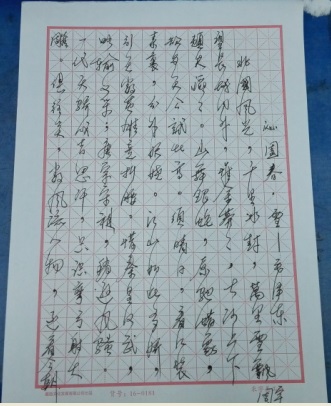 沁园春 雪—毛泽东
北国风光，千里冰封，万里雪飘
望长城内外，惟余莽莽，大河上下
顿失滔滔。山舞银蛇，原驰蜡象，
欲与天公试比高。须晴日，看红装
素裹，分外妖娆。江山如此多娇，
引无数英雄竞折腰。惜秦皇汉武，
略输文采，唐宗宋祖，稍逊风骚。
一代天骄成吉思汗，只识弯弓射大
雕。俱往矣，数风流人物，还看今朝
型号：16-0181